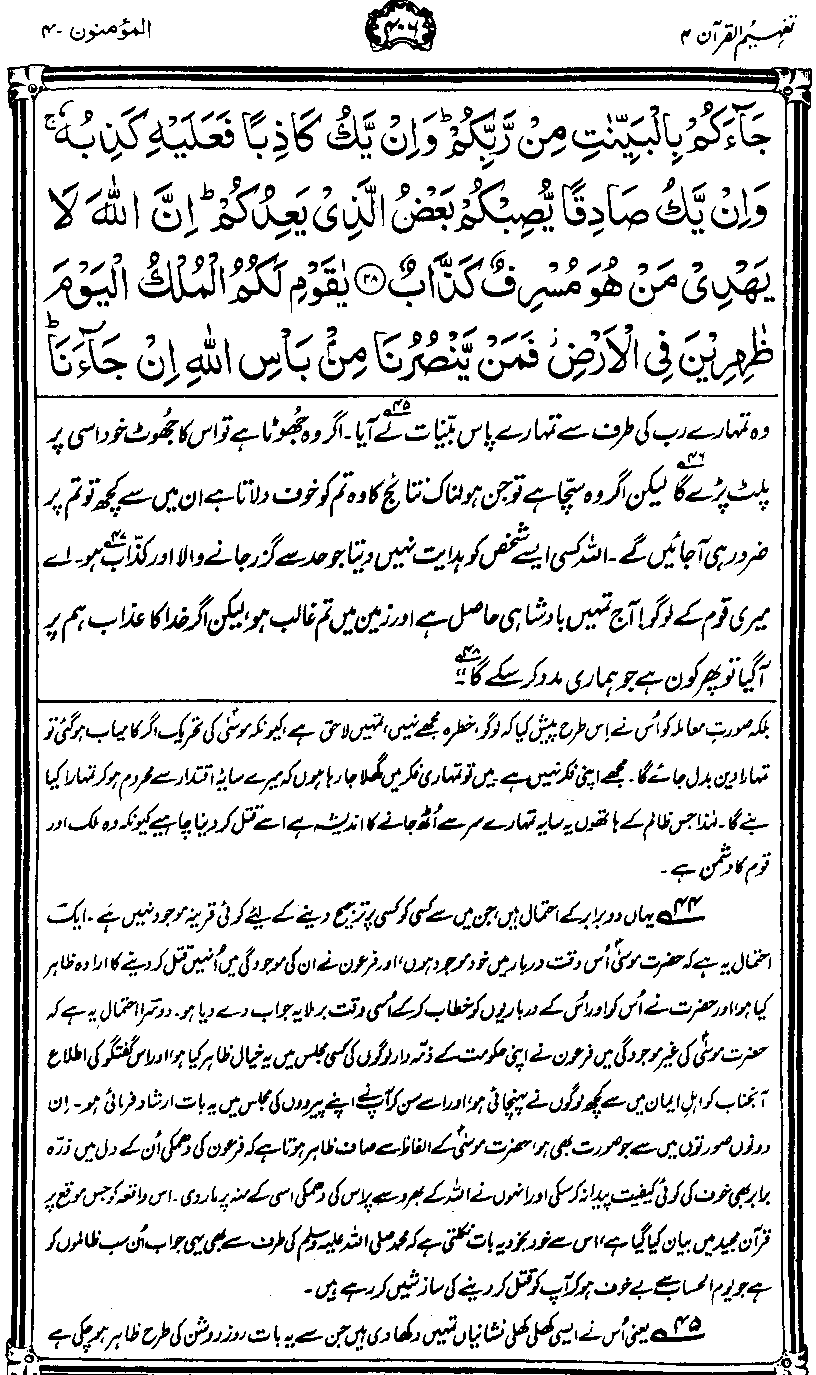 تفہیم القرآن ۴
۴۰۶
المؤمنون ۴۰
جَآءَكُمْ بِالْبَيِّنٰتِ مِنْ رَّبِّكُمْ ؕ وَاِنْ يَّكُ كَاذِبًا فَعَلَيْهِ كَذِبُهٗ ۚ
وَاِنْ يَّكُ صَادِقًا يُّصِبْكُمْ بَعْضُ الَّذِىْ يَعِدُكُمْ ؕ اِنَّ اللّٰهَ لَا
يَهْدِىْ مَنْ هُوَ مُسْرِفٌ كَذَّابٌ ﴿۲۸﴾ يٰقَوْمِ لَكُمُ الْمُلْكُ الْيَوْمَ
ظٰهِرِيْنَ فِى الْاَرْضِ ۫ فَمَنْ يَّنْصُرُنَا مِنْۢ بَاْسِ اللّٰهِ اِنْ جَآءَنَا ؕ
وہ تمہارے رب کی طرف سے تمہارے پاس بیّنات لے آیا۴۵۔ اگر وہ جُھوٹا ہے تو اس کا جُھوٹ خود اسی پر
پلٹ پڑے گا۴۶ لیکن اگر وہ سچّا ہے تو جن ہولناک نتائج کا وہ تم کو خوف دلاتا ہے ان میں سے کچھ تو تم پر
ضرور ہی آجائیں گے۔ اللہ کسی ایسے شخص کو ہدایت نہیں دیتا جو حد سے گزر جانے والا اور کذّاب ہو۴۷۔ اے
میری قوم کے لوگو! آج تمہیں بادشاہی حاصل ہے اور زمین میں تم غالب ہو، لیکن اگر خدا کا عذاب ہم پر
آگیا تو پھر کون ہے جو ہماری مدد کر سکے گا۴۸"
بلکہ صورتِ معاملہ کو اُس نے اِس طرح پیش کیا کہ لوگو، خطرہ مجھے نہیں، تمہیں لاحق ہے، کیونکہ موسٰیؑ کی تحریک اگر کامیاب ہو گئی تو
تمہارا دین بدل جائے گا۔ مجھے اپنی فکر نہیں ہے۔ میں تو تمہاری فکر میں گھلا جا رہا ہوں کہ میرے سایۂ اقتدار سے محروم ہو کر تمہارا کیا
بنے گا۔ لہٰذا جس ظالم کے ہاتھوں یہ سایہ تمہارے سر سے اُٹھ جانے کا اندیشہ ہے اُسے قتل کر دینا چاہیے کیونکہ وہ ملک اور
قوم کا دشمن ہے۔
۴۴ یہاں دو برابر کے احتمال ہیں، جن میں سے کسی کو کسی پر ترجیح دینے کے لیے کوئی قرینہ موجود نہیں ہے۔ ایک
احتمال یہ ہے کہ حضرت موسٰیؑ اُس وقت دربار میں خود موجود ہوں، اور فرعون نے ان کی موجودگی میں اُنہیں قتل کر دینے کا ارادہ ظاہر
کیا ہو، اور حضرت نے اُس کو اور اُس کے درباریوں کو خطاب کر کے اُسی وقت برملا یہ جواب دے دیا ہو۔ دوسرا احتمال یہ ہے کہ
حضرت موسٰیؑ کی غیر موجودگی میں فرعون نے اپنی حکومت کے ذمّہ دار لوگوں کی کسی مجلس میں یہ خیال ظاہر کیا ہو، اور اس گفتگو کی اطلاع
آنجناب کو اہلِ ایمان میں سے کچھ لوگوں نے پہنچائی ہو، اور اسے سن کر آپؑ نے اپنے پیرووں کی مجلس میں یہ بات ارشاد فرمائی ہو۔ اِن
دونوں صورتوں میں سے جو صورت بھی ہو، حضرت موسٰیؑ کے الفاظ سے صاف ظاہر ہوتا ہے کہ فرعون کی دھمکی اُن کے دل میں ذرّہ
برابر بھی خوف کی کوئی کیفیت پیدا نہ کر سکی اور انہوں نے اللہ کے بھروسے پر اس کی دھمکی اسی کے منہ پر مار دی۔ اس واقعہ کو جس موقع پر
قرآن مجید میں بیان کیا گیا ہے، اس سے خود بخود یہ بات نکلتی ہے کہ محمد صلی اللہ علیہ وسلم کی طرف سے بھی یہی جواب اُن سب ظالموں کو
ہے جو یوم الحساب سے بے خوف ہو کر آپ کو قتل کر دینے کی سازشیں کر رہے ہیں۔
۴۵ یعنی اُس نے ایسی کھلی کھلی نشانیاں تمہیں دکھا دی ہیں جن سے یہ بات روزِ روشن کی طرح ظاہر ہو چکی ہے